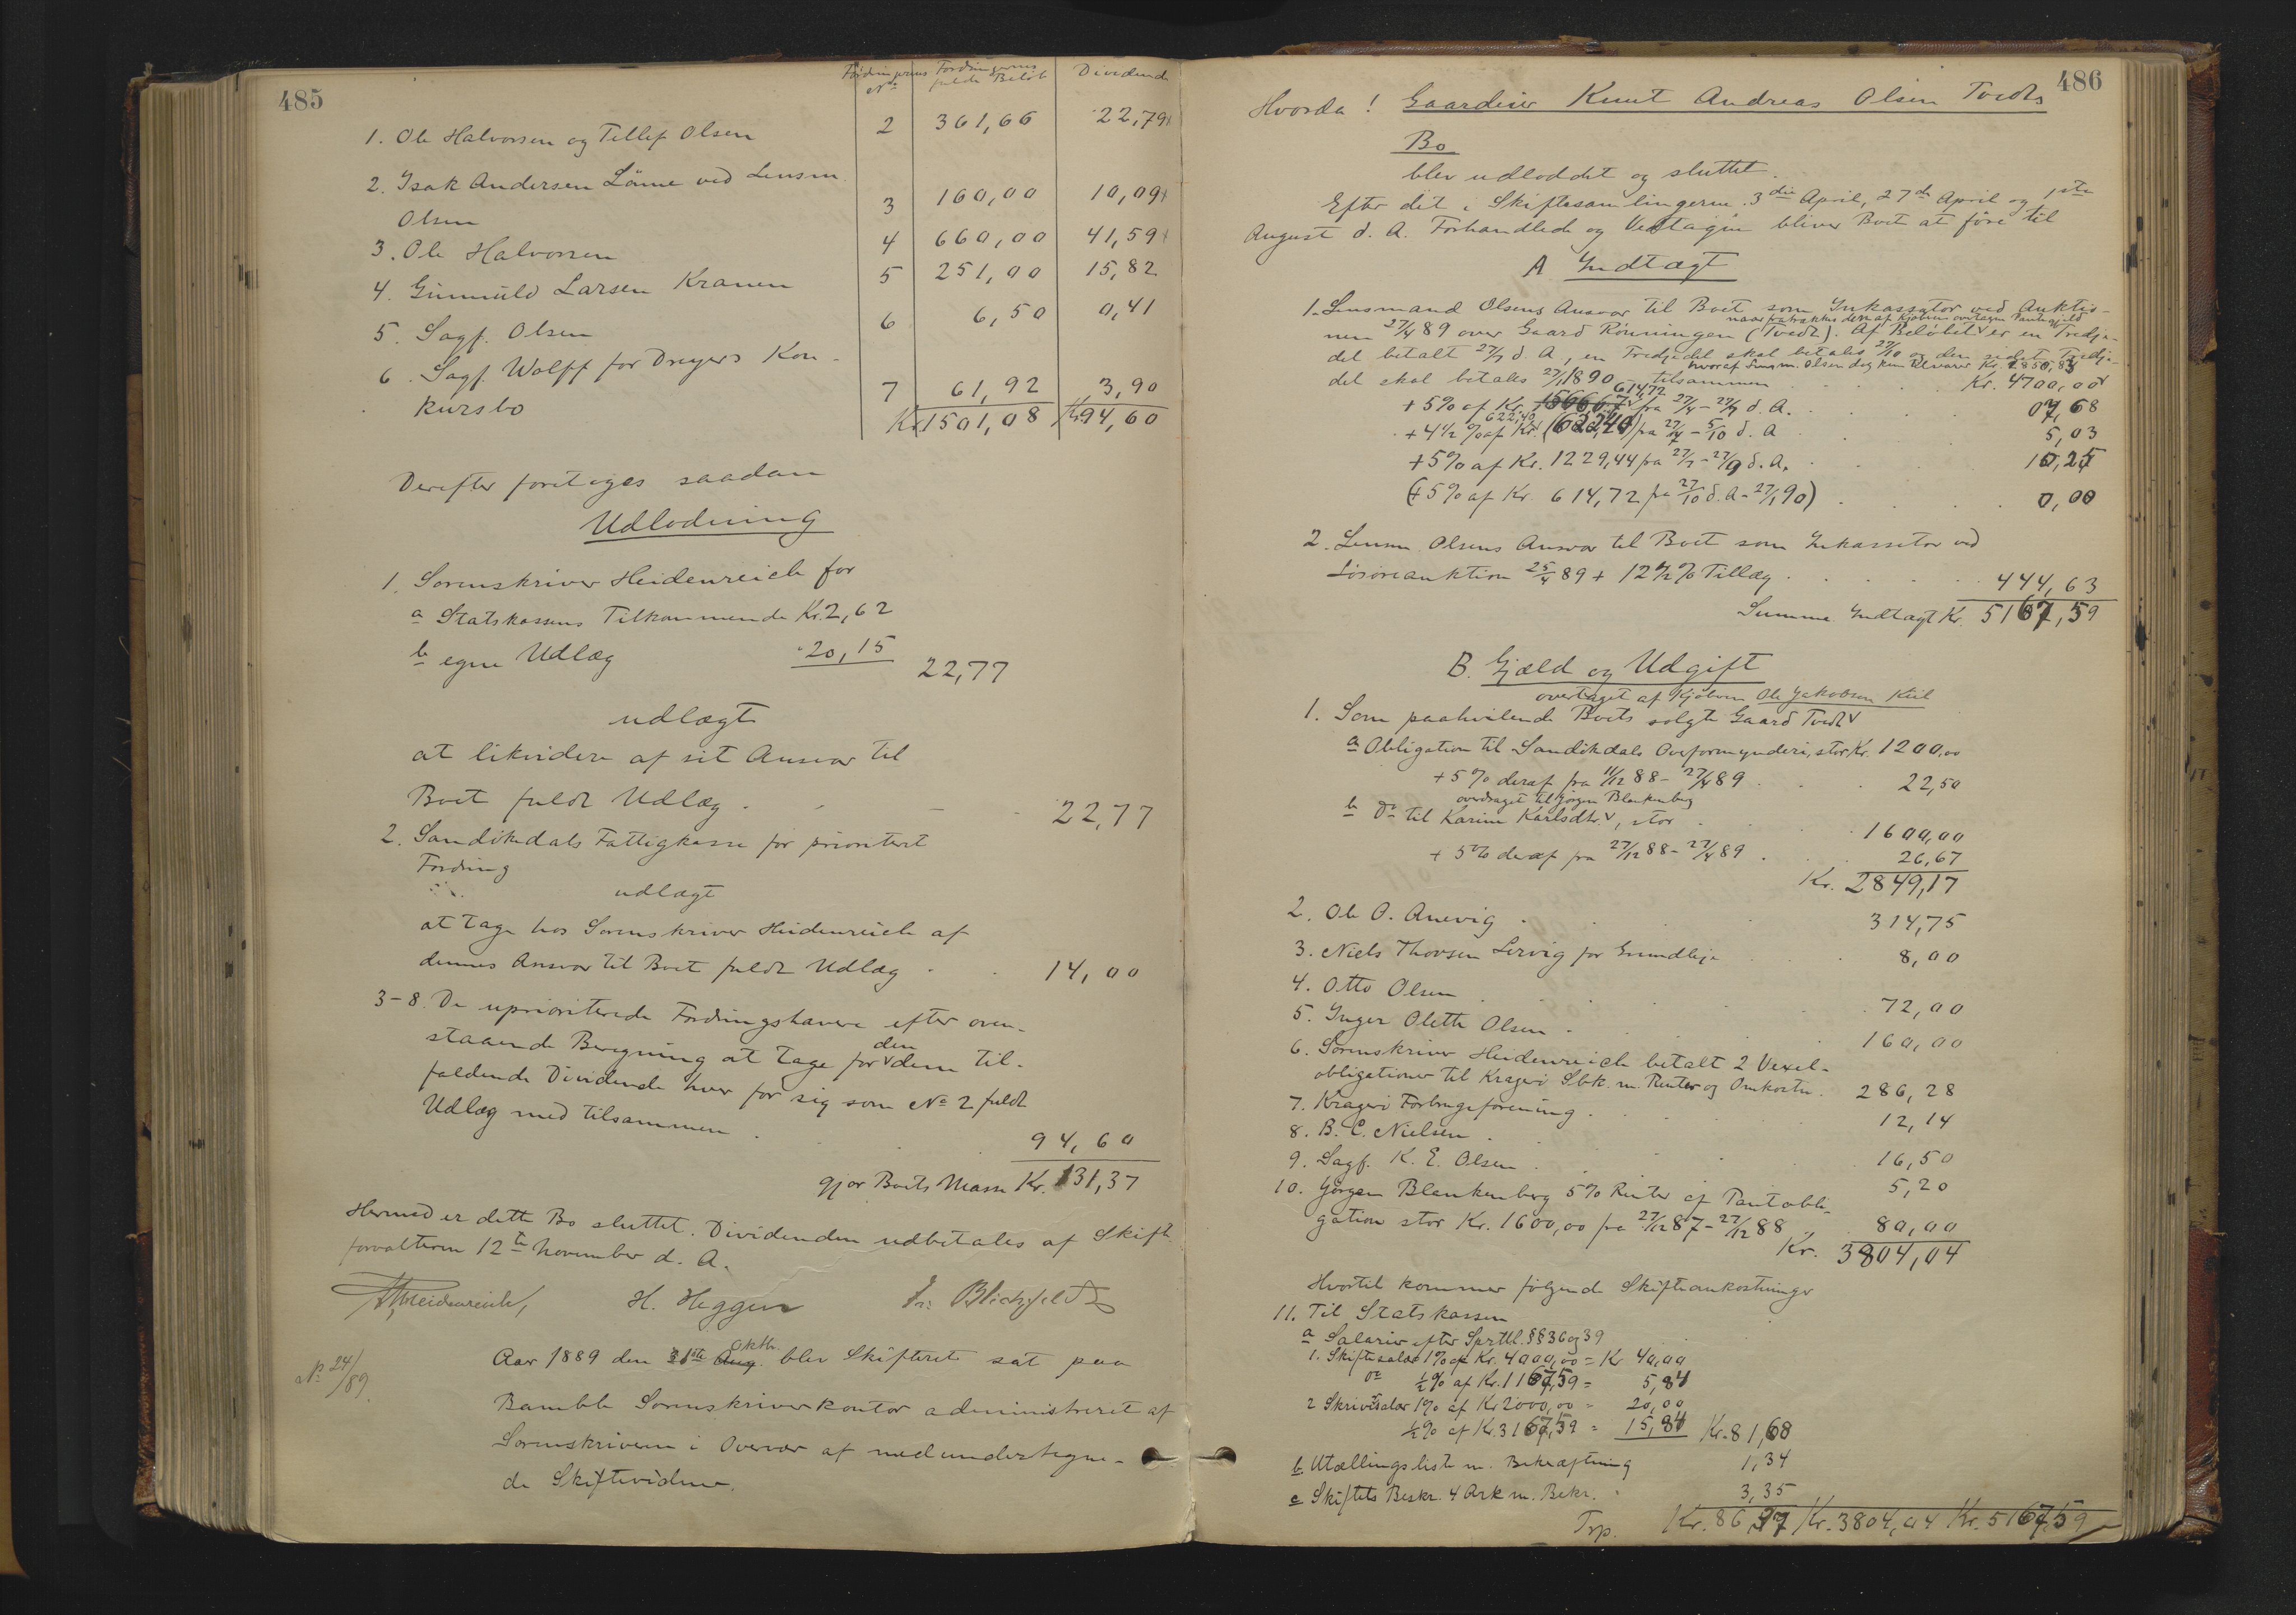 485
Fordringernes No Fordringernes fulde Beløb Dividende
1. Ole Halvorsen og Tellef Olsen 2 361,66 22,79
2. Isak Andersen Lönne ved Lensm.
Olsen 3 160,00 10,09
3. Ole Halvorsen 4 660,00 41,59
4. Gunnuld Larsen Kranen 5 251,00 15,82
5. Sagf. Olsen 6 6,50 0,41
6. Sagf. Wolff for Dreyers Kon-
kursbo 7 61,92 3,90
Kr. 1501,08 Kr. 94,60
Derefter foretages saadan
Udlodning
1. Sorenskriver Heidenreich for
a Statskassens Tilkommende Kr. 2,62
b egne Udlæg 20,15 22,77
udlagt
at likvidere af sit Ansvar til
Boet fuldt Udlæg 22,77
2. Sandökedals Fattigkasse for prioriteret
Fordring
udlagt
at tage hos Sorenskriver Heidenreich af
dennes Ansvar til Boet fuldt Udlæg 14,00
3-8. De uprioriterede Fordringshavere efter oven-
staaende Beregning at tage for den dem til-
faldende Dividende hver for sig som No 2 fuldt
Udlæg med tilsammen 94,60
gjør Boets Masse Kr. 131,37
Hermed er dette Bo sluttet. Dividenden udbetales af Skifte-
forvalteren 12te November d. A.
Heidenreich H. Heggen Blichfeldt
No 24/89
Aar 1889 den 31te Aug. Oktbr. blev Skifteret sat paa
Bamble Sorenskriverkontor administreret af
Sorenskriveren i Overvær af medundertegne-
de Skiftevidner.
486
Hvorda! Gaardeier Knut Andreas Olsen Tvedts
Bo
blev udloddet og sluttet.
Efter det i Skiftesamlingerne 3die April, 27de April og 1ste
August d. A. Forhandlede og Vedtagne bliver Boet at føre til
A Indtægt
1. Lensmand Olsens Ansvar til Boet som Inkassator ved Auktio-
nen 27/4 89 over Gaard Rönningen (Tvedt). Af Beløbet er en Tredje-
naar fratrækkes den af Kjøberen overtagne Pantegjeld
del betalt 27/7 d. A., en Tredjedel skal betales 27/10 og den sidste Tredje-
hvoraf Lensm. Olsen dog kun tilsvarer Kr. 1850,83
del skal betales 27/1 1890 tilsammen Kr. 4700,00
+ 5% af Kr. 614,72 fra 27/4 - 27/7 d. A. 7,68
+ 4 1/2 % af Kr. 622,40 fra 27/7 - 5/10 d. A 5,03
+ 5% af Kr. 1229,44 fra 27/7 - 27/9 d. A. 10,25
(+ 5% af Kr. 614,72 fra 27/10 d. A - 27/1 90) 0,00
2. Lensm. Olsens Ansvar til Boet som Inkassator ved
Løsøreauktion 25/4 89 + 12 1/2 % Tillæg 444,63
Summa Indtægt Kr. 5167,59
B. Gjæld og Udgift
overtaget af Kjøberen Ole Jakobsen Kiil
1. Som paahvilende Boets solgte Gaard Tvedt
a Obligation til Sandökedals Overformynderi, stor Kr. 1200,00
+ 5% deraf fra 11/12 88 - 27/4 89 22,50
overdraget til Jørgen Blankenberg
b Do til Karine Karlsdtr., stor 1600,00
+ 5% deraf fra 27/12 88 - 27/4 89 26,67
Kr. 2849,17
2. Ole O. Anevig 314,75
3. Niels Thorsen Lervig for Grundleje 8,00
4. Otto Olsen 72,00
5. Inger Olette Olsen 160,00
6. Sorenskriver Heidenreich betalt 2 Vexel-
obligationer til Kragerö Sbk. m. Renter og Omkostn. 286,28
7. Kragerö Forbrugsforening 12,14
8. B. C. Nielsen 16,50
9. Sagf. K. E. Olsen 5,20
10. Jørgen Blankenberg 5% Renter af Pantobli-
gation stor Kr. 1600,00 fra 27/12 87 - 27/12 88 80,00
Kr. 3804,04
Hvortil kommer følgende Skifteomkostninger
11. Til Statskassen
a Salarier efter Sprtl. §§ 36 og 39
1. Skiftesalær 1% af Kr. 4000,00 = Kr. 40,00
Do 1/2 % af Kr. 1167,59 = 5,84
2 Skriversalær 1% af Kr 2000,00 = 20,00
1/2 % af Kr. 3167,59 = 15,84 Kr. 81,68
b Utællingsliste m. Bekræftning 1,34
c Skiftets Beskr. 4 Ark m. Bekr. 3,35
Trp. Kr. 86,37 Kr. 3804,04 Kr. 5167,59